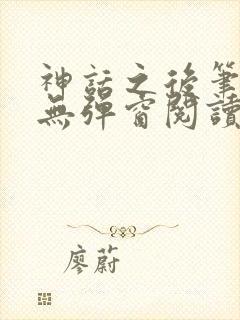 神話之後筆
無彈窗閱讀
廖蔚